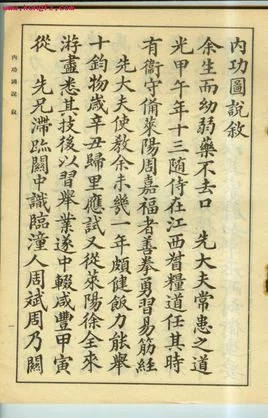 內功圖說敘
余生而幼弱藥不去口　先大夫常患之道
光甲午年十三隨侍在江西督糧道任其時
有衞守備萊陽周嘉福者善拳勇習易筋經
先大夫使教余未幾一年頗健飯力能舉
十鈞物歲辛丑歸里應試又從萊陽徐全來
游盡悉其技後以習舉業遂中輟咸豐甲寅
從　先兄滯跡關中識臨潼人周斌周乃關
內功圖說　敘
一